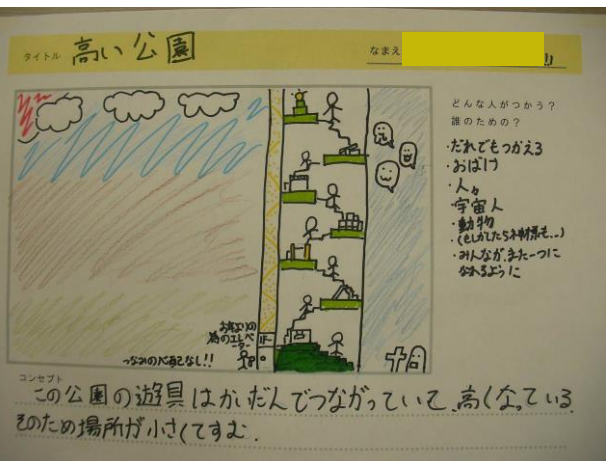 タイトル 高い公園
なまえ
どんな人がつかう?
誰のための?
・だれでもつかえる
・おばけ
・人々
・宇宙人
・動物
・(もしかしたら神様も…)
・みんなが、また一つに
なれるように
お年よりの
為のエレベーター
つなみの心配なし!!
コンセプト
この公園の遊具はかいだんでつながっていて、高くなっている
そのため場所が小さくてすむ.